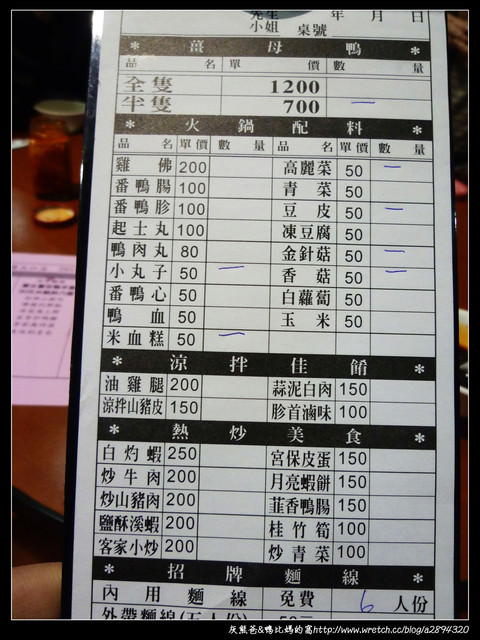 先生 年 月 日
小姐 桌號
* 薑母鴨 *
品名 單價 數量
全隻 1200
半隻 700 一
* 火鍋配料 *
品名 單價 數量 品名 單價 數量
雞佛 200 高麗菜 50 一
番鴨腸 100 青菜 50
番鴨胗 100 豆皮 50 一
起士丸 100 凍豆腐 50
鴨肉丸 80 金針菇 50 一
小丸子 50 一 香菇 50 一
番鴨心 50 白蘿蔔 50
鴨血 50 玉米 50
米血糕 50 一
* 涼拌佳餚 *
油雞腿 200 蒜泥白肉 150
涼拌山豬皮 150 胗首滷味 100
* 熱炒美食 *
白灼蝦 250 宮保皮蛋 150
炒牛肉 200 月亮蝦餅 150
炒山豬肉 200 韮香鴨腸 150
鹽酥溪蝦 200 桂竹筍 100
客家小炒 200 炒青菜 100
* 招牌麵線 *
內用麵線 免費 6 人份
外帶麵線(五人份) 50元
灰熊爸&鴨比媽的窩http://www.wretch.cc/blog/a2894320